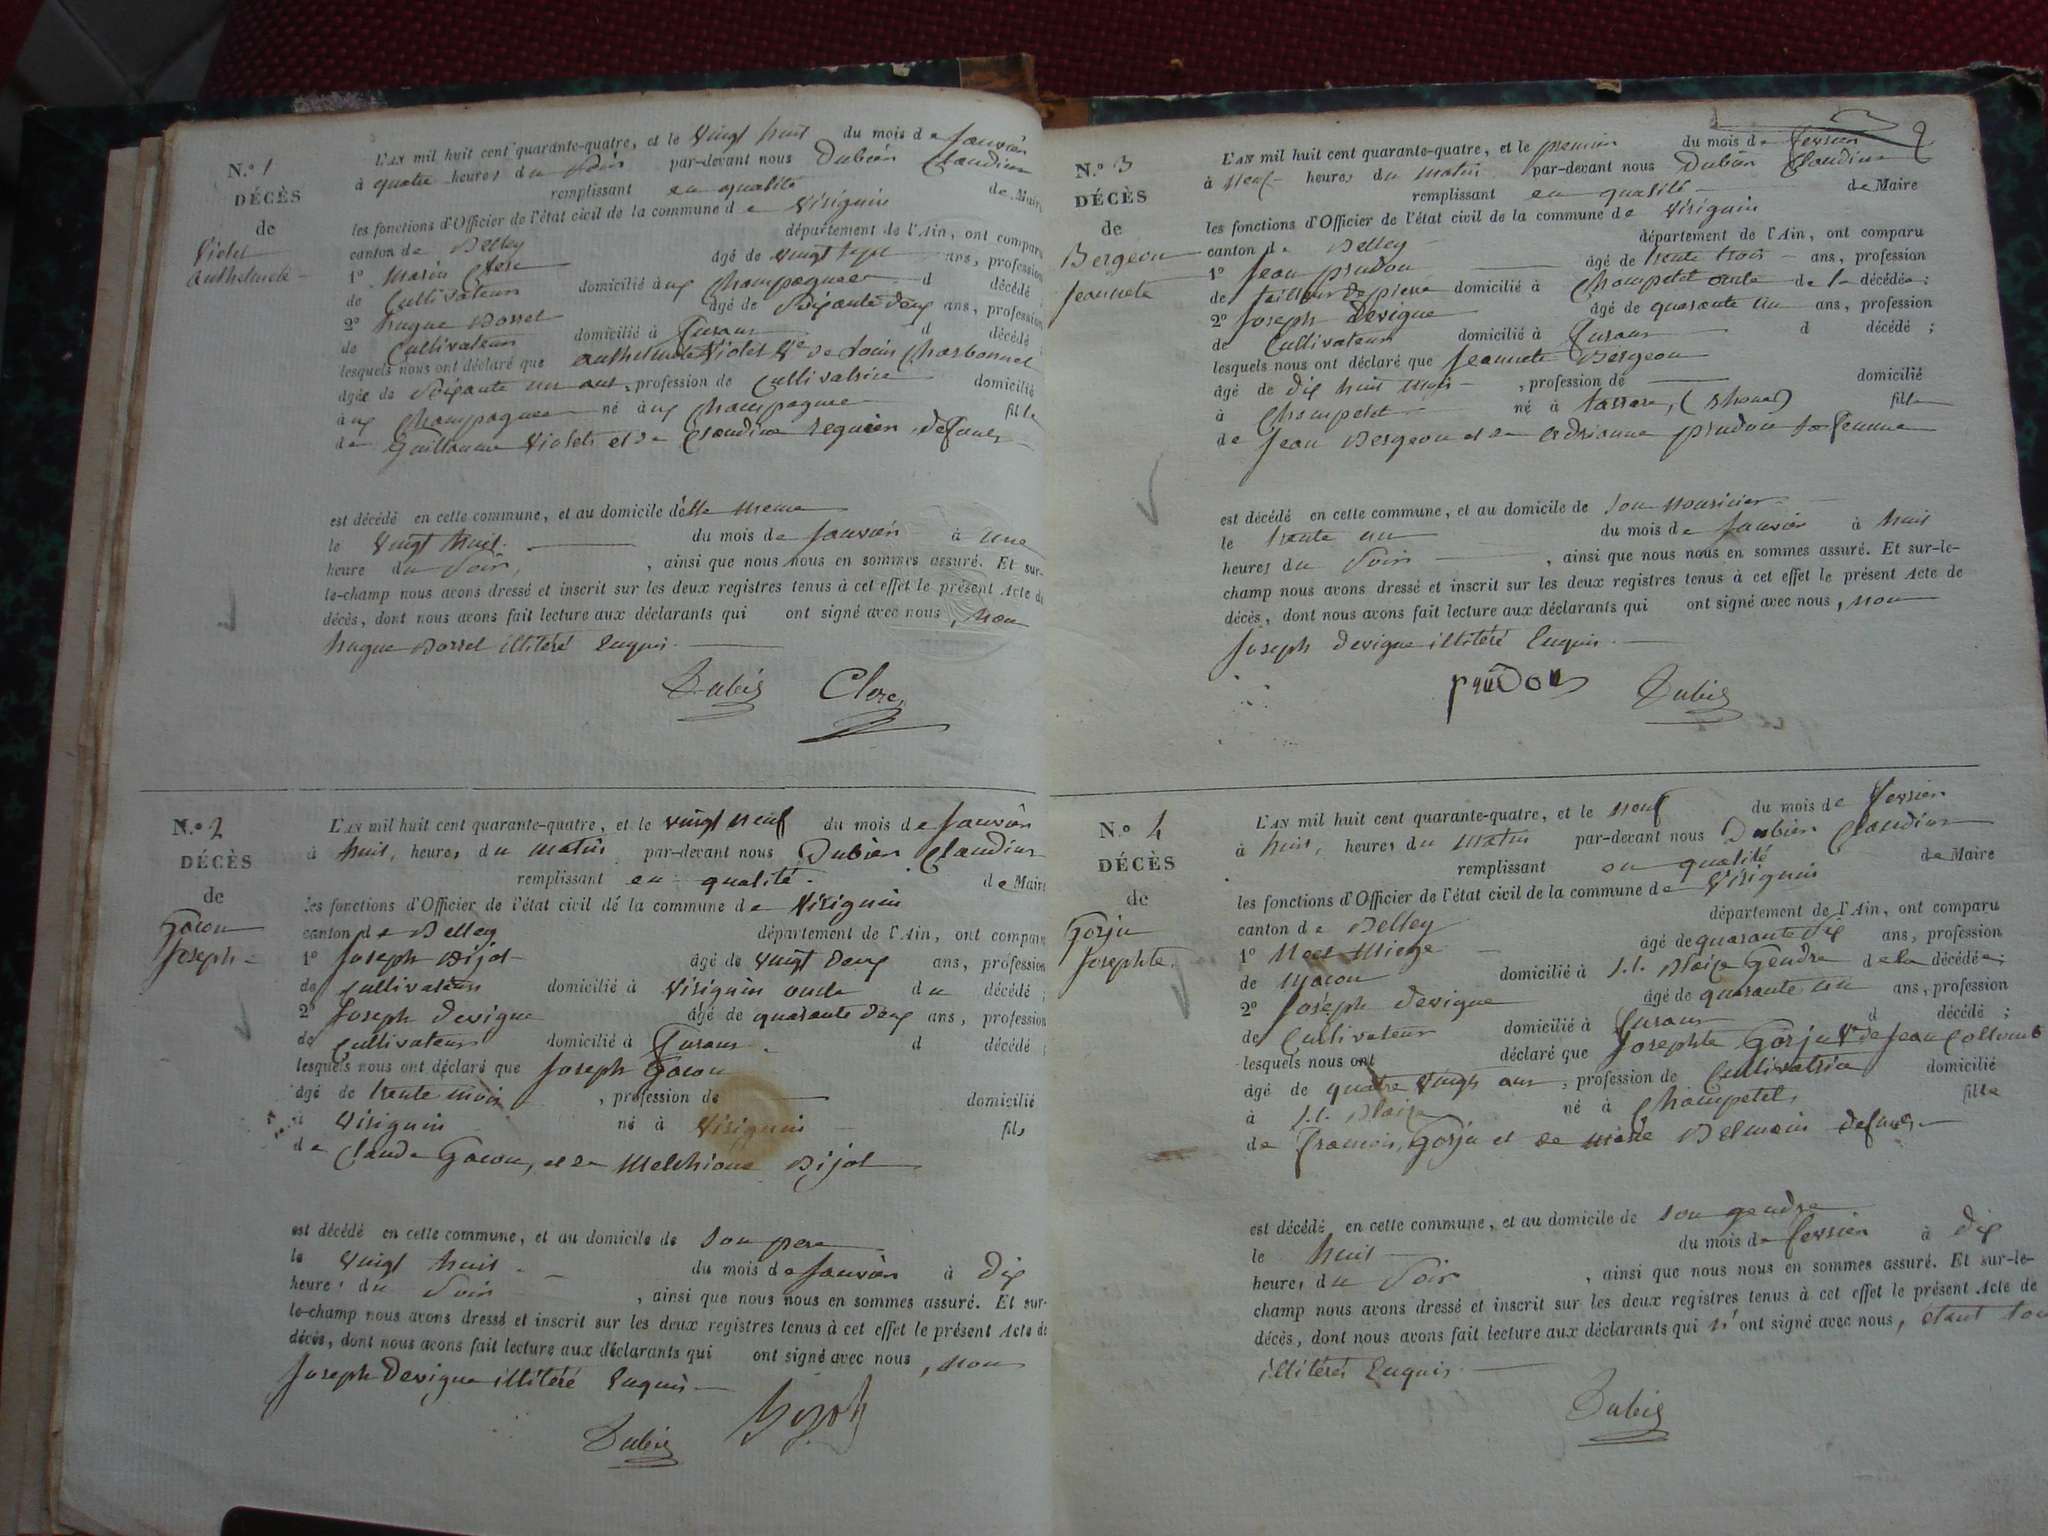 N.° 1
DÉCÈS
de
Violet
Anthelmete
L'AN mil huit cent quarante-quatre, et le vingt huit du mois de Janvier
à quatre heures du Soir par-devant nous Dubien Claudius
remplissant en qualité de Maire
les fonctions d'Officier de l'état civil de la commune de Virignin
canton de Belley département de l'Ain, ont comparu
1° Marin Clerc âgé de vingt sept ans, profession
de Cultivateur domicilié à Champagnee d décédé ;
2° hugue Borret âgé de Soixante deux ans, profession
de Cultivateur domicilié à Fusaur d décédé ;
lesquels nous ont déclaré que Anthelmete Violet Ve de Louis Charbonnet
âgée de Soixante un ans, profession de Cultivatrice domicilié
à Champagnee né à Champagnee fille
de Guillaume Violet et de Claudine défunts
est décédé en cette commune, et au domicile d'elle meme
le vingt huit du mois de Janvier à une
heure du Soir, ainsi que nous nous en sommes assuré. Et sur-
le-champ nous avons dressé et inscrit sur les deux registres tenus à cet effet le présent Acte de
décès, dont nous avons fait lecture aux déclarants qui ont signé avec nous, non
hugue Borret illitéré Enquis.
Dubien Clerc
N.° 2
DÉCÈS
de
Gacon
Joseph
L'AN mil huit cent quarante-quatre, et le vingt neuf du mois de Janvier
à huit, heures du matin par-devant nous Dubien Claudius
remplissant en qualité de Maire
les fonctions d'Officier de l'état civil de la commune de Virignin
canton de Belley département de l'Ain, ont comparu
1° Joseph Bijot âgé de vingt deux ans, profession
de Cultivateur domicilié à Virignin oncle du décédé ;
2° Joseph Devigne âgé de quarante deux ans, profession
de Cultivateur domicilié à Fusaur d décédé ;
lesquels nous ont déclaré que Joseph Gacon
âgé de trente mois, profession de domicilié
à Virignin né à Virignin fils
de Claude Gacon, et de Melchione Bijot
est décédé en cette commune, et au domicile de son pere
le vingt huit du mois de Janvier à dix
heures du Soir, ainsi que nous nous en sommes assuré. Et sur-
le-champ nous avons dressé et inscrit sur les deux registres tenus à cet effet le présent Acte de
décès, dont nous avons fait lecture aux déclarants qui ont signé avec nous, non
Joseph Devigne illitéré Enquis
Dubien Bijot
2
N.° 3
DÉCÈS
de
Bergeon
Jeannete
L'AN mil huit cent quarante-quatre, et le premier du mois de fevrier
à neuf heures du matin par-devant nous Dubien Claudius
remplissant en qualité de Maire
les fonctions d'Officier de l'état civil de la commune de Virignin
canton de Belley département de l'Ain, ont comparu
1° Jean prudon âgé de trente trois ans, profession
de tailleur de pierre domicilié à Champetel oncle de la décédée ;
2° Joseph Devigne âgé de quarante un ans, profession
de Cultivateur domicilié à Fusaur d décédé ;
lesquels nous ont déclaré que Jeannete Bergeon
âgé de dix huit mois, profession de domicilié
à Champetel né à tarrare, (Rhone) fille
de Jean Bergeon et de Adrianne prudon sa femme
est décédé en cette commune, et au domicile de son nouricier
le trente un du mois de Janvier à huit
heures du Soir, ainsi que nous nous en sommes assuré. Et sur-le-
champ nous avons dressé et inscrit sur les deux registres tenus à cet effet le présent Acte de
décès, dont nous avons fait lecture aux déclarants qui ont signé avec nous, non
Joseph Devigne illitéré Enquis.
prudon Dubien
N.° 4
DÉCÈS
de
Gorju
Josephte
L'AN mil huit cent quarante-quatre, et le neuf du mois de fevrier
à huit, heures du matin par-devant nous Dubien Claudius
remplissant en qualité de Maire
les fonctions d'Officier de l'état civil de la commune de Virignin
canton de Belley département de l'Ain, ont comparu
1° Noel Miege âgé de quarante dix ans, profession
de Macon domicilié à St. Blaize Gendre de la décédée ;
2° Joseph Devigne âgé de quarante un ans, profession
de Cultivateur domicilié à Fusaur d décédé ;
lesquels nous ont déclaré que Josephte Gorju Ve de Jean Collomb
âgé de quatre vingts ans, profession de Cultivatrice domicilié
à St. Blaize né à Champetel, fille
de François Gorju et de marie Belmain défunts
est décédé en cette commune, et au domicile de son gendre
le huit du mois de fevrier à dix
heures du Soir, ainsi que nous nous en sommes assuré. Et sur-le-
champ nous avons dressé et inscrit sur les deux registres tenus à cet effet le présent Acte de
décès, dont nous avons fait lecture aux déclarants qui n'ont signé avec nous, étant tous
illitérés Enquis.
Dubien